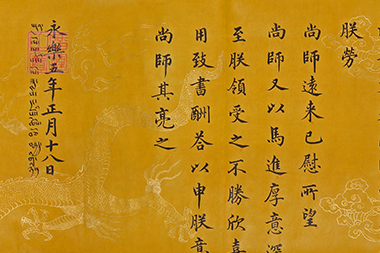 朕勞
尚師遠来已慰所望
尚師又以馬進厚意深
至朕領受之不勝欣喜
用致書酬荅以申朕意
尚師其亮之
永樂五年正月十八日